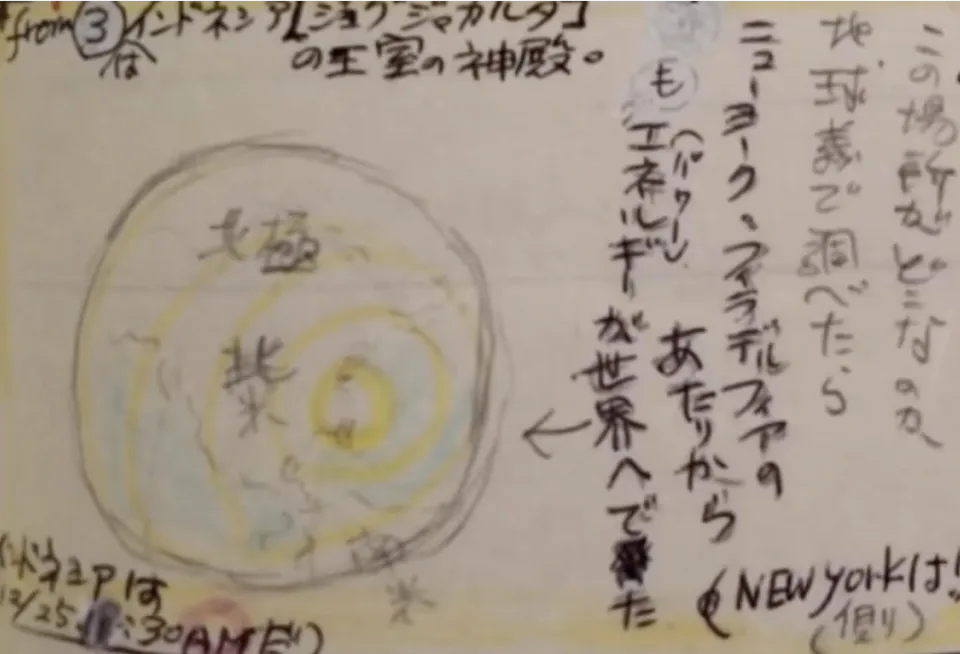 from ③ インドネシア[ジョグジャカルタ]
は
の王室の神殿。
この場所がどこなのか、
地球義で調べたら
ニューヨーク、フィラデルフィアの
あたりから
も
(パワー)
エネルギーが世界へでた
←
北極
北
米
南
米
インドネシアは
12/25
:30AMだ)
(NEW yorkは!
(側)